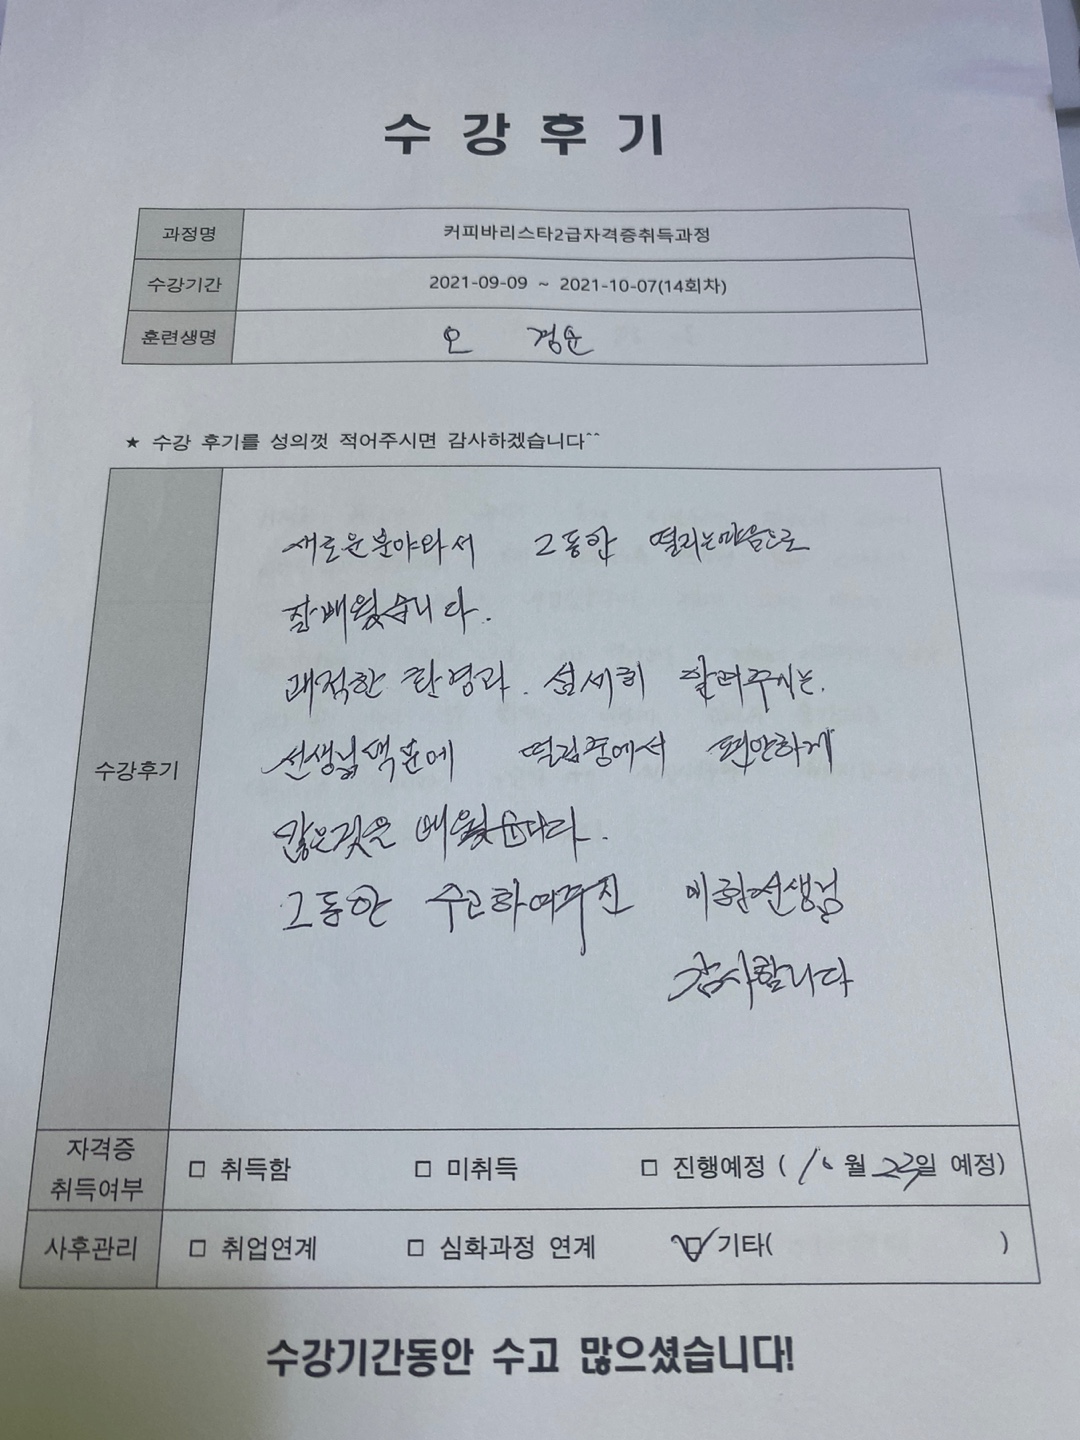 수강후기
과정명 커피바리스타2급자격증취득과정
수강기간 2021-09-09 ~ 2021-10-07(14회차)
훈련생명 오 경순
★ 수강 후기를 성의껏 적어주시면 감사하겠습니다^^
수강후기
새로운분야와서 그동안 떨리는마음으로
잘배웠습니다.
쾌적한 환경과. 섬세히 알려주시는.
선생님덕분에 떨림중에서 편안하게
많은것을 배웠습니다.
그동안 수고하여주진 선생님
감사합니다
자격증 취득여부 □ 취득함 □ 미취득 □ 진행예정 ( 10월 23일 예정)
사후관리 □ 취업연계 □ 심화과정 연계 ☑ 기타( )
수강기간동안 수고 많으셨습니다!